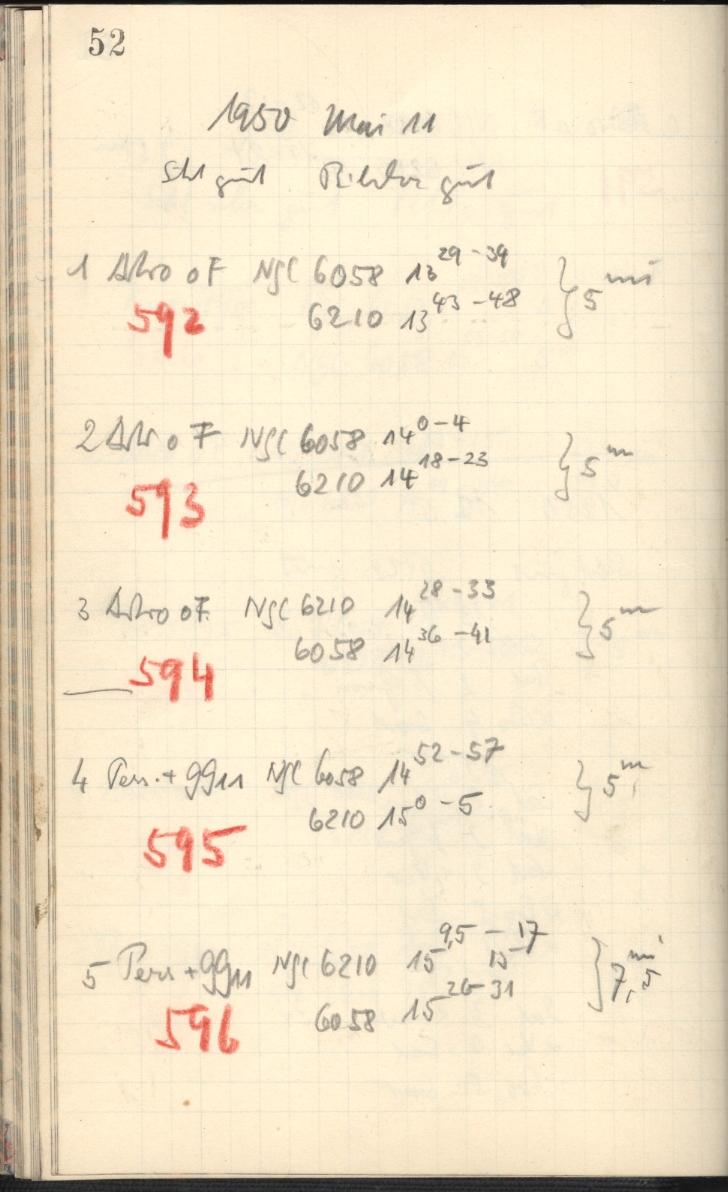 52
1950 Mai 11
gut gut
1 Astro oF NGC 6058 13 29-39 } 5 min
592 6210 13 43-48
2 Astr oF NGC 6058 14 0-4 } 5 m
6210 14 18-23
593
3 Astro oF. NGC 6210 14 28-33 } 5 m
6058 14 36-41
594
4 Perr. + GG11 NGC 6058 14 52-57 } 5 m
6210 15 0-5
595
5 Perr + GG11 NGC 6210 15 9,5 - 15 17 } 7,5 min
596 6058 15 26-31